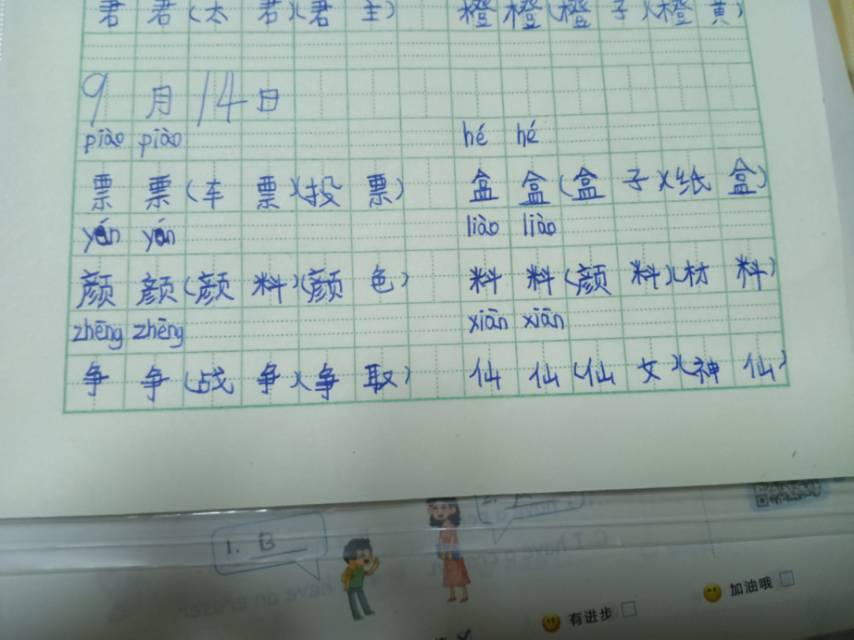 君 君(太 君)(君 主) 橙 橙(橙 子)(橙 黄)
9月14日
piào piào hé hé
票 票(车 票)(投 票) 盒 盒(盒 子)(纸 盒)
yán yán liào liào
颜 颜(颜 料)(颜 色) 料 料(颜 料)(材 料)
zhēng zhēng xiān xiān
争 争(战 争)(争 取) 仙 仙(仙 女)(神 仙)
1. B
有进步
加油哦